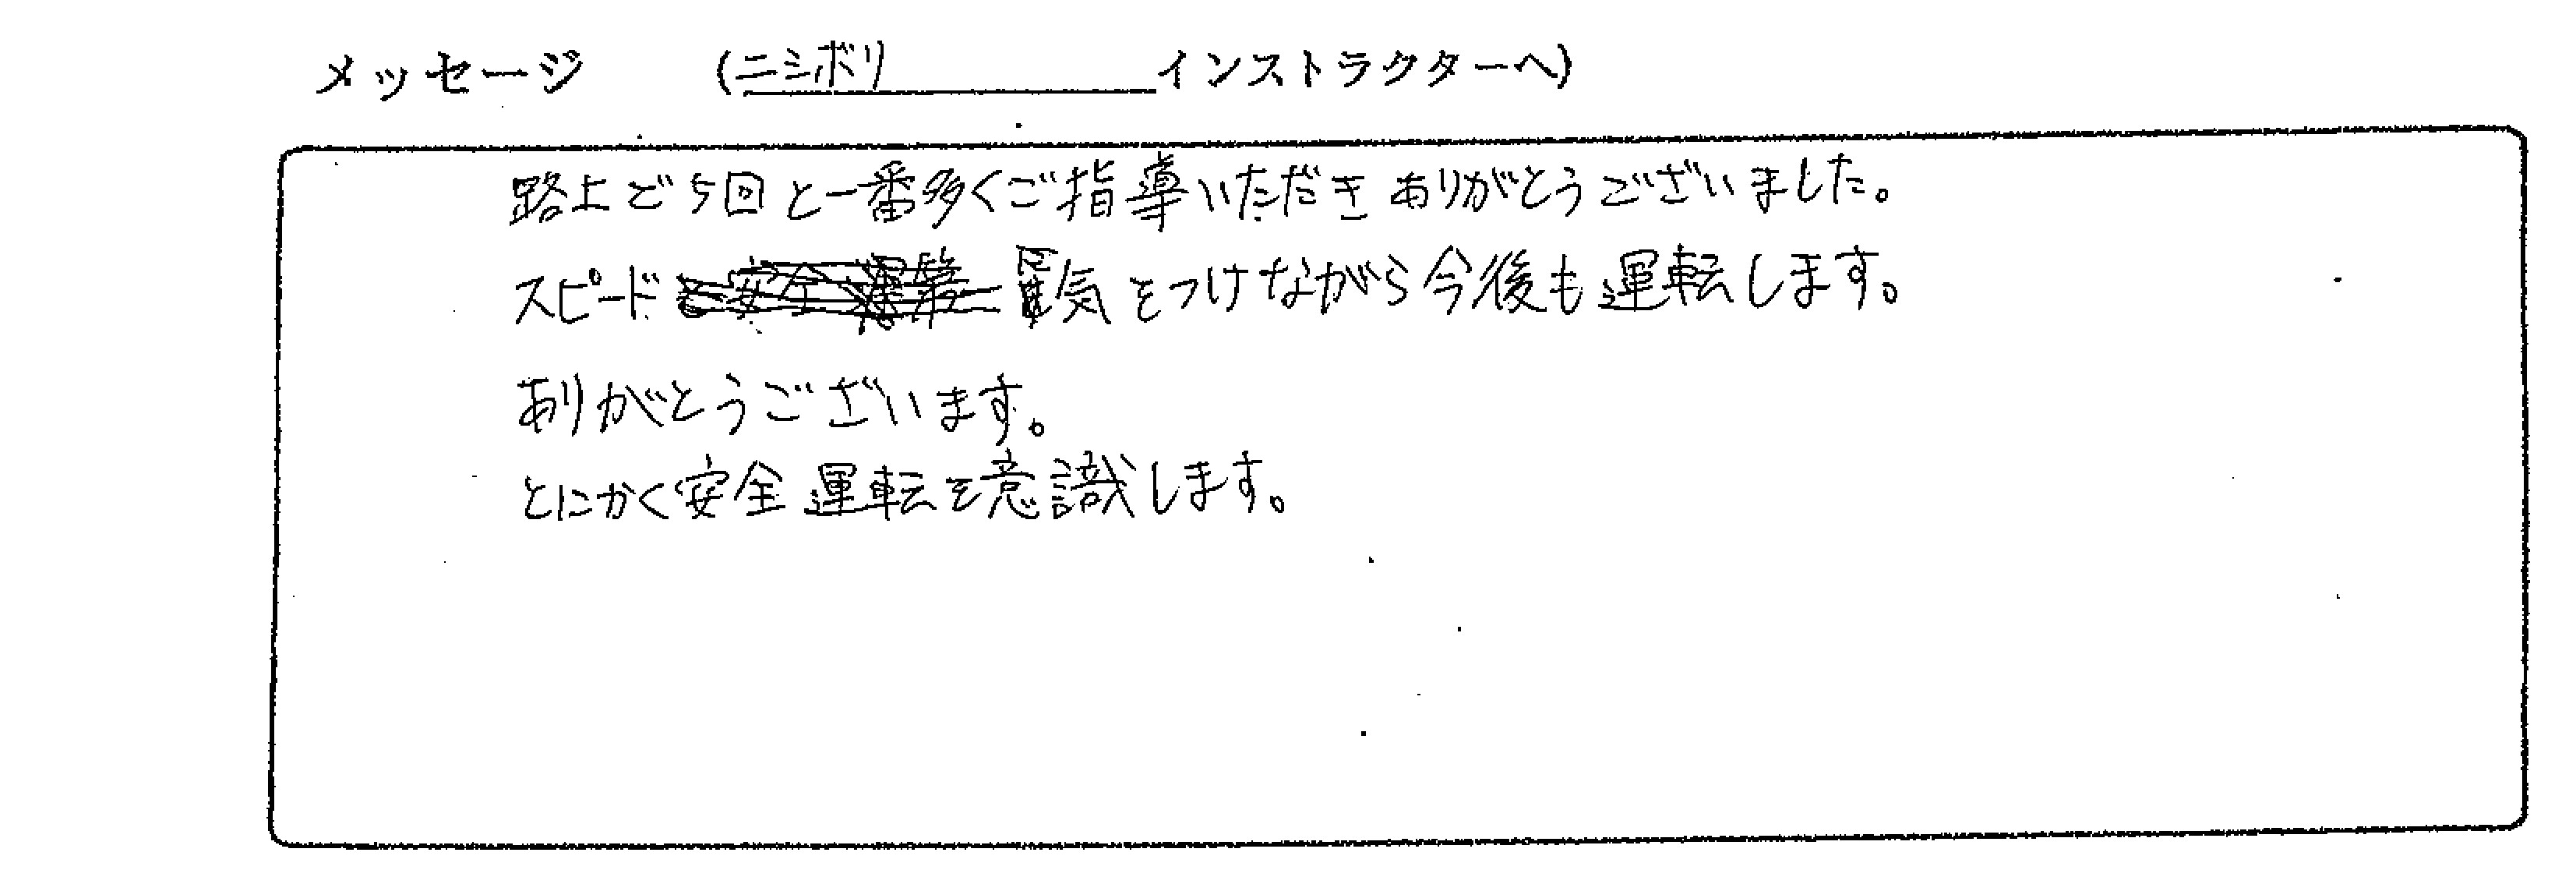 メッセージ　(ニシボリ　インストラクターへ)
路上で5回と一番多くご指導いただきありがとうございました。
スピード 気をつけながら今後も運転します。
ありがとうございます。
とにかく安全運転を意識します。